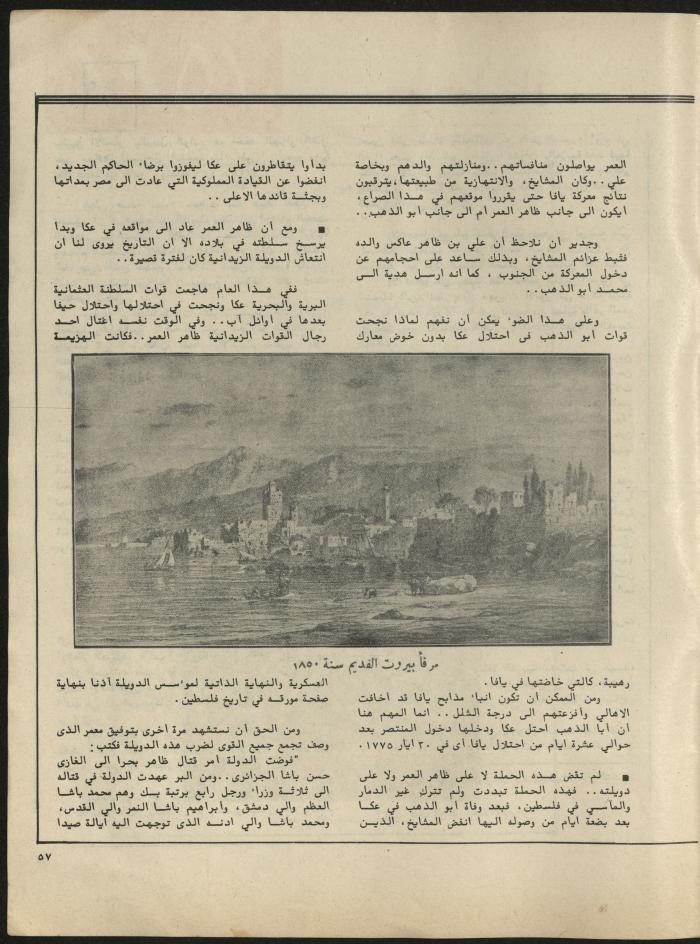 العمر يواصلون منافساتهم..ومنازلتهم والدهم وبخاصة
علي..وكان المشايخ، والانتهازية من طبيعتها،يترقبون
نتائج معركة يافا حتى يقرروا موقعهم في هـذا الصراع،
ايكون الى جانب ظاهر العمر ام الى جانب ابو الذهب..
وجدير ان نلاحظ أن علي بن ظاهر عاكس والده
فثبط عزائم المشايخ، وبذلك ساعد على احجامهم عن
دخول المعركة من الجنوب ، كما انه ارسل هدية الى
محمد ابو الذهب..
وعلى هـذا الضوء يمكن أن نفهم لماذا نجحت
قوات أبو الذهب في احتلال عكا بدون خوض معارك
رهيبة، كالتي خاضتها في يافا.
ومن الممكن أن تكون أنباء مذابح يافا قد أخافت
الاهالي وأفزعتهم الى درجة الشلل.. انما المهم هنا
أن أبا الذهب احتل عكا ودخلها دخول المنتصر بعد
حوالي عشرة أيام من احتلال يافا أي في ٣٠ أيار ١٧٧٥.
■ لم تقض هـذه الحملة لا على ظاهر العمر ولا على
دويلته.. فهذه الحملة تبددت ولم تترك غير الدمار
والمآسي في فلسطين، فبعد وفاة أبو الذهب في عكـا
بعد بضعة أيام من وصوله اليها انفض المشايخ، الذيـن
بدأوا يتقاطرون على عكا ليفوزوا برضاء الحاكم الجديد،
انفضوا عن القيادة المملوكية التي عادت الى مصر بمعداتها
وبجثـة قائدها الاعلى..
■ ومع أن ظاهر العمر عاد الى مواقعه في عكا وبدأ
يرسـخ سـلطته في بلاده الا ان التاريخ يروي لنا ان
انتعاش الدويلة الزيدانية كان لفترة قصيرة..
ففي هـذا العام هاجمت قوات السلطنة العثمانية
البرية والبحرية عكا ونجحت في احتلالها واحتلال حيفا
بعدها في أوائل آب.. وفي الوقت نفسـه اغتال احـد
رجال القوات الزيدانية ظاهر العمر..فكانت الهزيمـة
العسكرية والنهاية الذاتية لمؤسس الدويلة آذنا بنهاية
صفحة مورقـه في تاريخ فلسطين.
ومن الحق أن نستشهد مرة أخرى بتوفيق معمر الذي
وصف تجمع جميع القوى لضرب هذه الدويلة فكتب:
"فوضت الدولة امر قتال ظاهر بحرا الى الغازي
حسن باشا الجزائري..ومن البر عهدت الدولة في قتاله
الى ثلاثـة وزراء ورجل رابع برتبة بـك وهم محمد باشـا
العظم والي دمشق، وأبراهيم باشـا النمر والي القدس،
ومحمد باشـا والي ادنـه الذي توجهت اليه أيالة صيدا
مرفأ بيروت القديم سنة ١٨٥٠
٥٧